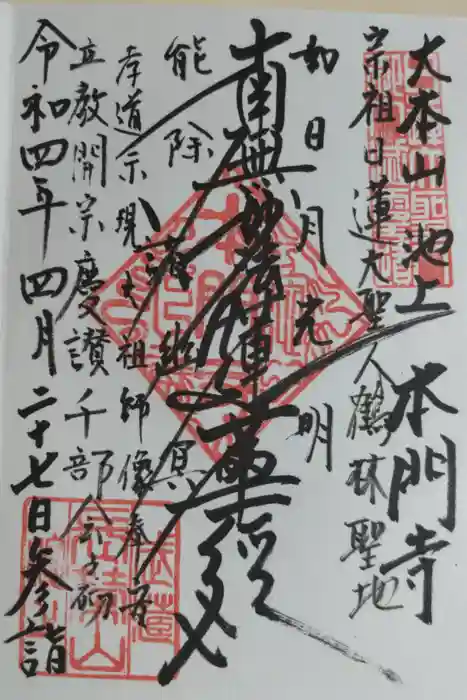 大本山 池上 本門寺
宗祖日蓮大聖人鶴林聖地
如日月光明
南無妙法蓮華経
能除諸幽冥
孝道示現大祖師像奉安
立教開宗慶讃千部会之砌
令和四年四月二十七日参詣